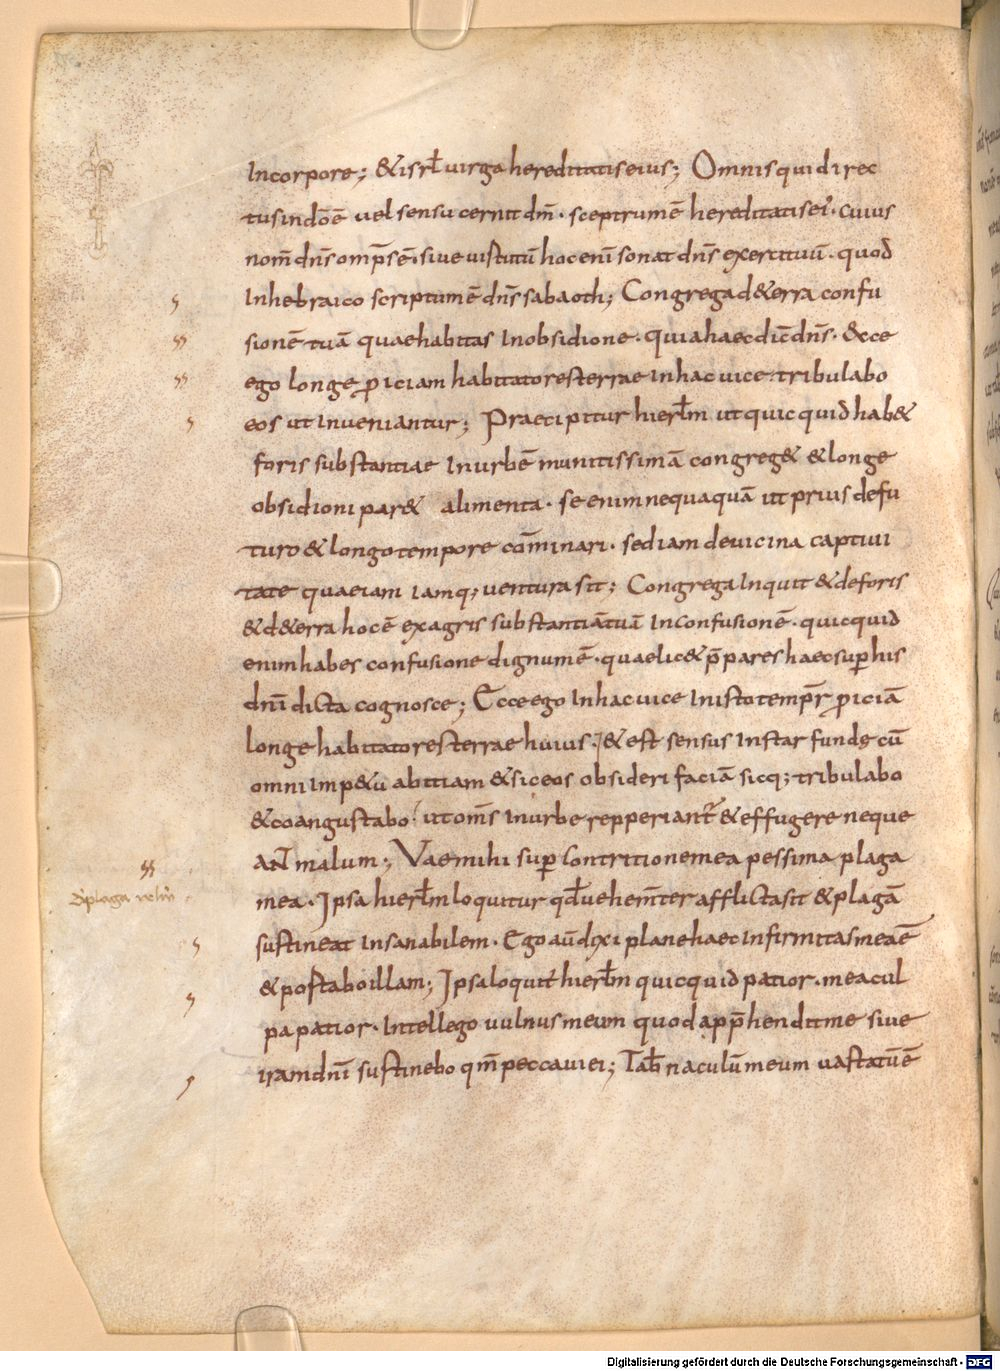 Incorpore; & isrł uirga hereditatis eius; Omnis qui direc
tus in dōē uel sensu cernit dm̄ · sceptrum ē hereditatis ei᾿ · cuius
nom̄ dn̄s omp̄s ē · siue uistitū hoc enī sonat dn̄s exercituū · quod
In hebraico scriptum ē dn̄s sabaoth; Congrega d& erra confu
sionē tuā quae habitas In obsidione · quia haec dic̄ dn̄s · & cce
ego longe ꝓiciam habitatores terrae In hac uice · tribulabo
eos ut Inueniantur; Praecipitur hierłm ut quicquid hab&
foris substantiae In urbē munitissimā congreg& & longe
obsidioni par& alimenta · se enim nequaquā ut prius de fu
turo & longo tempore cōminari · sed iam de uicina captiui
tate quae iam iamq; uentura sit; Congrega Inquit & deforis
& d& erra hoc ē ex agris substantiā tuā In confusionē · quicquid
enim habes confusione dignum ē · quae lic& p̄pares haec sup his
dn̄i dicta cognosce; Ecce ego In hac uice In isto tempr̄ ꝓiciā
longe habitatores terrae huius · & est sensus Instar fundę cū
omni Imp&u abitiam & sic eos obsideri faciā sicq; tribulabo
& coangustabo · ut oms̄ In urbe repperiant᾿ & effugere neque
ant malum; Vae mihi sup contritione mea pessima plaga
mea · Ipsa hierłm loquitur qđ uehem̄ter afflicta sit & plagā
sustineat Insanabilem · Ego aū dixi plane haec Infirmitas mea ē
& portabo illam; Ipsa loquit᾿ hierłm quicquid patior · mea cul
pa patior · Intellego uulnus meum quod app̄hendit me siue
iram dn̄i sustinebo qm̄ peccaui ei; Tab̄naculū meum uastatū ē
Digitalisierung gefördert durch die Deutsche Forschungsgemeinschaft - DFG